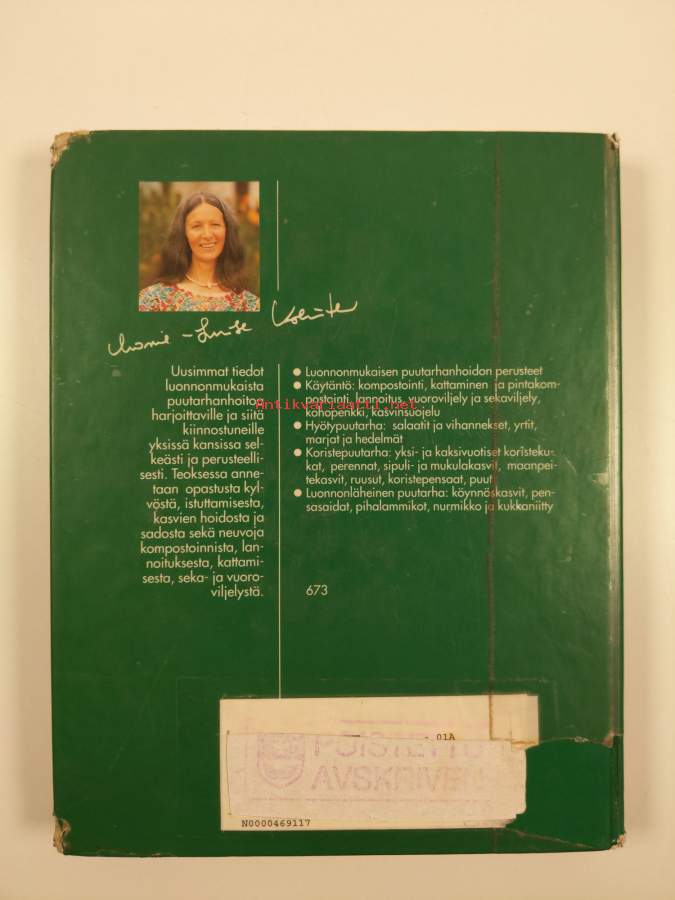 Marie-Luise Kreuter
Uusimmat tiedot
luonnonmukaista
puutarhanhoitoa
harjoittaville ja siitä
kiinnostuneille
yksissä kansissa sel-
keästi ja perusteelli-
sesti. Teoksessa anne-
taan opastusta kyl-
vöstä, istuttamisesta,
kasvien hoidosta ja
sadosta sekä neuvoja
kompostoinnista, lan-
noituksesta, kattami-
sesta, seka- ja vuoro-
viljelystä.
● Luonnonmukaisen puutarhanhoidon perusteet
● Käytäntö: kompostointi, kattaminen ja pintakom-
postointi, lannoitus, vuoroviljely ja sekaviljely,
kohopenkki, kasvinsuojelu
● Hyötypuutarha: salaatit ja vihannekset, yrtit,
marjat ja hedelmät
● Koristepuutarha: yksi- ja kaksivuotiset koristekuk-
kat, perennat, sipuli- ja mukulakasvit, maanpei-
tekasvit, ruusut, koristepensaat, puut
● Luonnonläheinen puutarha: köynnöskasvit, pen-
sasaidat, pihalammikot, nurmikko ja kukkaniitty
673
Antikvariaatti.net
01A
POISTETTU
AVSKRIVEN
N0000469117